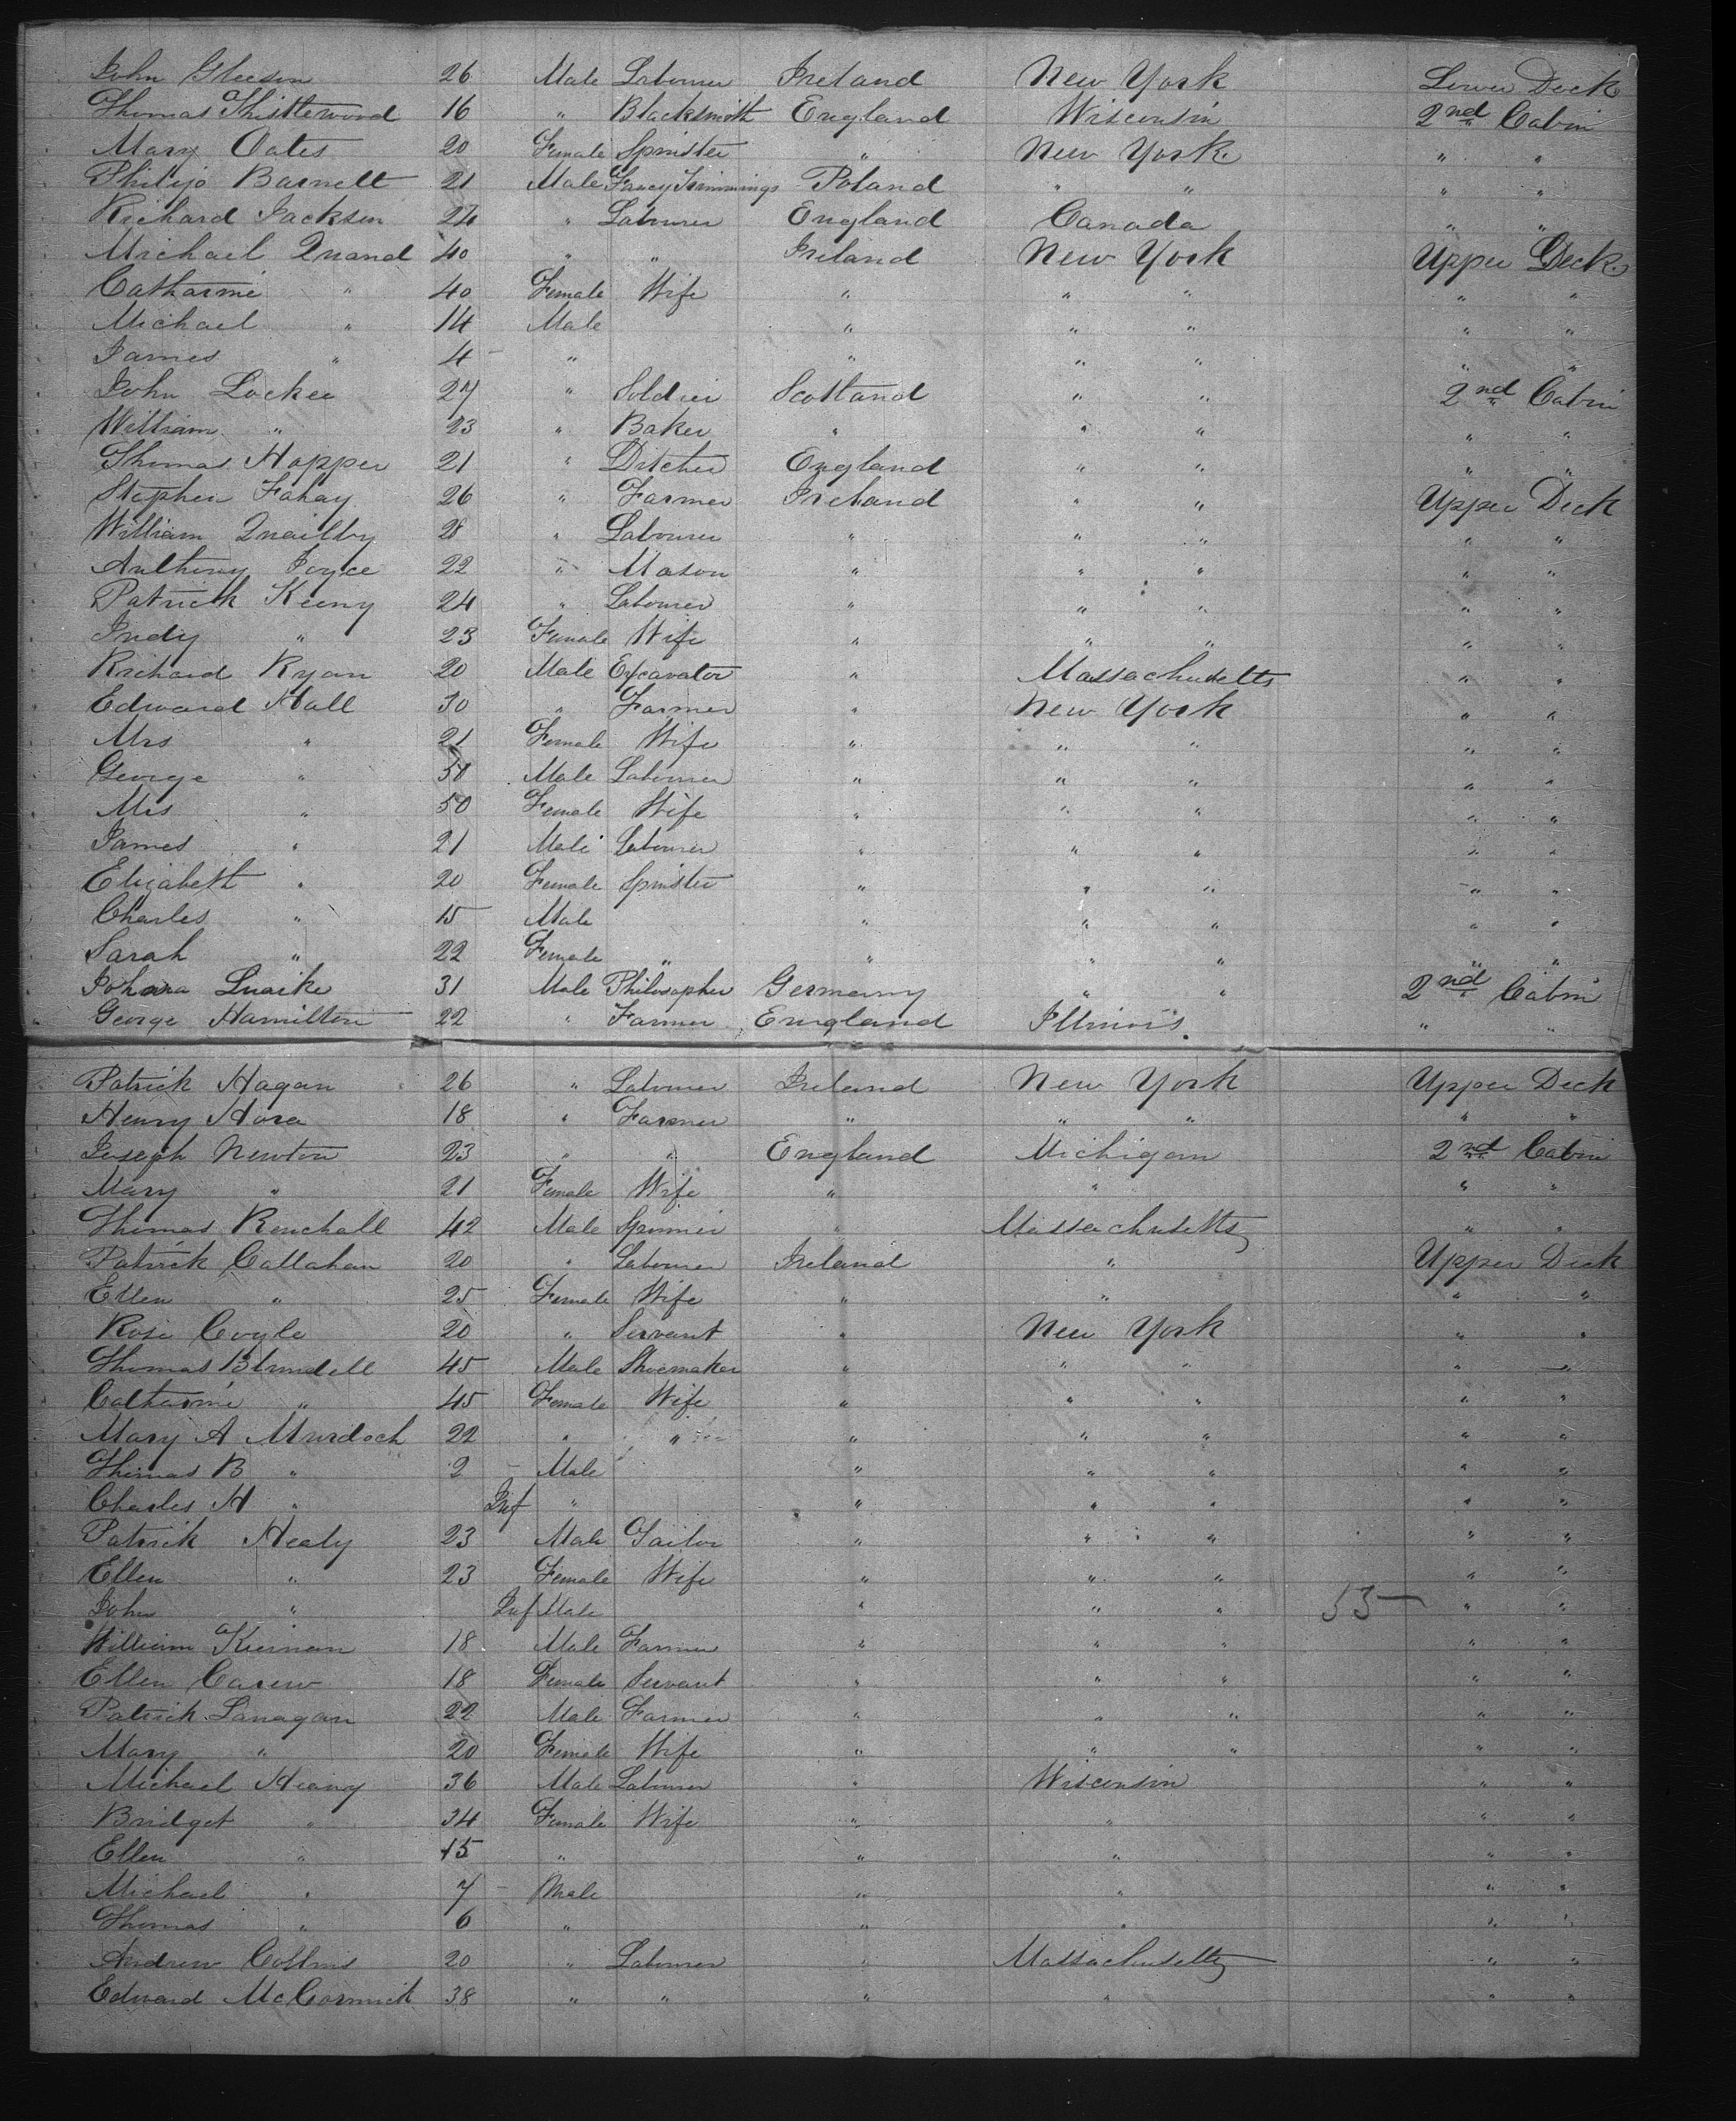 John Gleeson 26 Male Labourer Ireland New York Lower Deck
Thomas Thistlewood 16 " Blacksmith England Wisconsin 2nd Cabin
Mary Oates 20 Female Spinster " New York " "
Philip Barnett 21 Male Fancy Trimmings Poland " " " "
Richard Jackson 24 " Labourer England Canada " "
Michael Quand 40 " " Ireland New York Upper Deck
Catharine " 40 Female Wife " " " " "
Michael " 14 Male " " " " "
James " 4 " " " " " "
John Lockee 27 " Soldier Scotland " " 2nd Cabin
William " 23 " Baker " " " " "
Thomas Hopper 21 " Ditcher England " " " "
Stephen Fahay 26 " Farmer Ireland " " Upper Deck
William Quailby 28 " Labourer " " " " "
Anthony Joyce 22 " Mason " " " " "
Patrick Keeny 24 " Labourer " " " " "
Judy " 23 Female Wife " " " " "
Richard Ryan 20 Male Excavator " Massachusetts " "
Edward Hall 30 " Farmer " New York " "
Mrs " 21 Female Wife " " " " "
George " 50 Male Labourer " " " " "
Mrs " 50 Female Wife " " " " "
James " 21 Male Labourer " " " " "
Elizabeth " 20 Female Spinster " " " " "
Charles " 15 Male " " " " "
Sarah " 22 Female " " " " " "
Johana Luaike 31 Male Philosopher Germany " " 2nd Cabin
George Hamilton 22 " Farmer England Illinois " "
Patrick Hagan 26 " Labourer Ireland New York Upper Deck
Henry Hara 18 " Farmer " " " " "
Joseph Newton 23 " " England Michigan 2nd Cabin
Mary " 21 Female Wife " " " "
Thomas Renchall 42 Male Spinner " Massachusetts " "
Patrick Callahan 20 " Labourer Ireland " Upper Deck
Ellen " 25 Female Wife " " " "
Rose Coyle 20 " Servant " New York " "
Thomas Blundell 45 Male Shoemaker " " " " "
Catharine " 45 Female Wife " " " " "
Mary A Murdoch 22 " " " " " " "
Thomas B " 2 Male " " " " "
Charles H " Inf " " " " " "
Patrick Healy 23 Male Tailor " " " " "
Ellen " 23 Female Wife " " " " "
John " Inf Male " " " 53 " "
William Kiernan 18 Male Farmer " " " " "
Ellen Carew 18 Female Servant " " " " "
Patrick Lanagan 22 Male Farmer " " " " "
Mary " 20 Female Wife " " " " "
Michael Heany 36 Male Labourer " Wisconsin " "
Bridget " 34 Female Wife " " " "
Ellen " 15 " " " " "
Michael " 7 Male " " " "
Thomas " 6 " " " " "
Andrew Collins 20 " Labourer " Massachusetts " "
Edward McCormick 38 " " " " " "